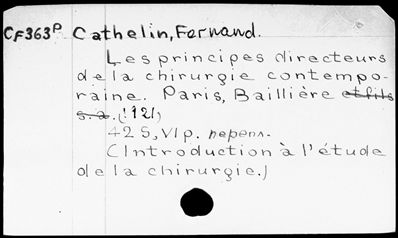 CF363P Cathelin, Fernand.
Les principes directeurs
de la chirurgie contempo-
raine. Paris, Baillière et fils
s.a. (1921)
425, VI p. перепл.
(Introduction à l'étude
de la chirurgie.)